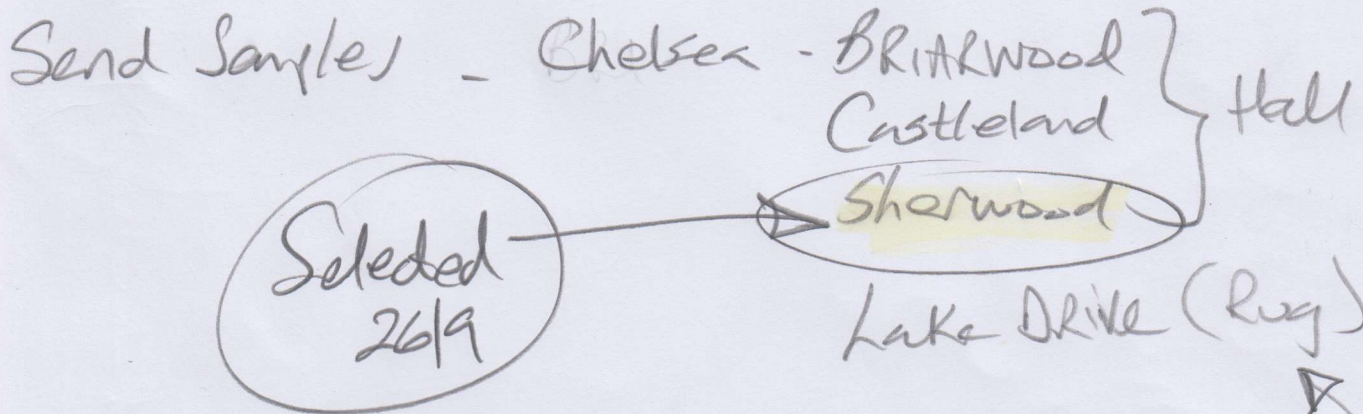 Send Samples - Chelsea - BRIARWOOD
Castleland
Hall
Sherwood
Selected
26/9
Lake DRive (Rug)